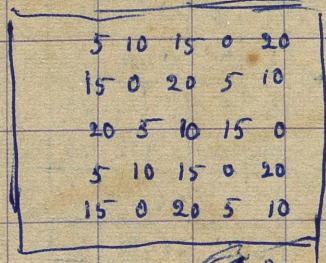 5 10 15 0 20
15 0 20 5 10
20 5 10 15 0
5 10 15 0 20
15 0 20 5 10